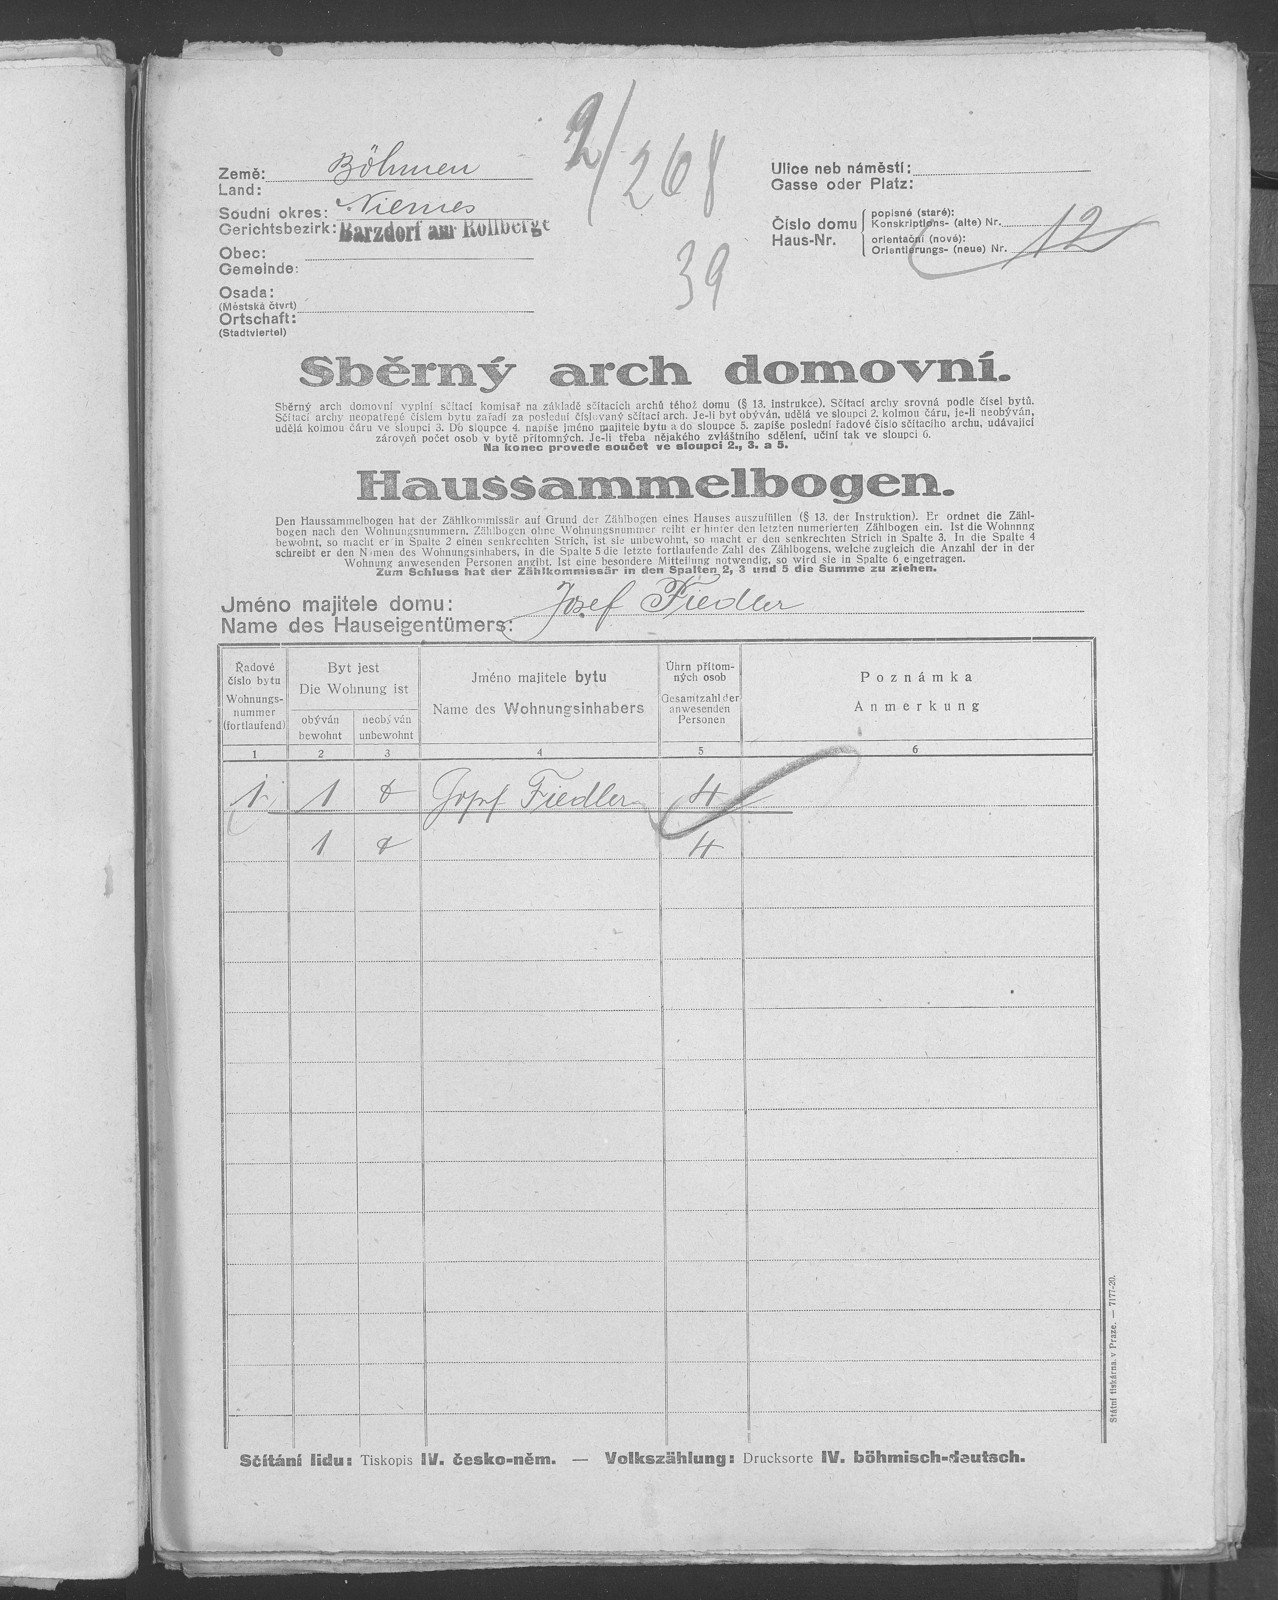 2/268
39
Země: Böhmen
Land:
Soudní okres: Niemes
Gerichtsbezirk: Barzdorf am Rollberge
Obec:
Gemeinde:
Osada:
(Městská čtvrt)
Ortschaft:
(Stadtviertel)
Ulice neb náměstí:
Gasse oder Platz:
Číslo domu
Haus-Nr.
popisné (staré):
Konskriptions- (alte) Nr.
orientační (nové):
Orientierungs- (neue) Nr.
12
Sběrný arch domovní.
Sběrný arch domovní vyplní sčítací komisař na základě sčítacích archů téhož domu (§ 13. instrukce). Sčítací archy srovná podle čísel bytů.
Sčítací archy neopatřené číslem bytu zařadí za poslední číslovaný sčítací arch. Je-li byt obýván, udělá ve sloupci 2. kolmou čáru, je-li neobýván,
udělá kolmou čáru ve sloupci 3. Do sloupce 4. napíše jméno majitele bytu a do sloupce 5. zapíše poslední řadové číslo sčítacího archu, udávající
zároveň počet osob v bytě přítomných. Je-li třeba nějakého zvláštního sdělení, učiní tak ve sloupci 6.
Na konec provede součet ve sloupci 2., 3. a 5.
Haussammelbogen.
Den Haussammelbogen hat der Zählkommissär auf Grund der Zählbogen eines Hauses auszufüllen (§ 13. der Instruktion). Er ordnet die Zähl-
bogen nach den Wohnungsnummern. Zählbogen ohne Wohnungsnummer reiht er hinter den letzten numerierten Zählbogen ein. Ist die Wohnnng
bewohnt, so macht er in Spalte 2 einen senkrechten Strich, ist sie unbewohnt, so macht er den senkrechten Strich in Spalte 3. In die Spalte 4
schreibt er den Namen des Wohnungsinhabers, in die Spalte 5 die letzte fortlaufende Zahl des Zählbogens, welche zugleich die Anzahl der in der
Wohnung anwesenden Personen angibt. Ist eine besondere Mitteilung notwendig, so wird sie in Spalte 6 eingetragen.
Zum Schluss hat der Zählkommissär in den Spalten 2, 3 und 5 die Summe zu ziehen.
Jméno majitele domu: Josef Fiedler
Name des Hauseigentümers:
Řadové
číslo bytu
Wohnungs-
nummer
(fortlaufend)
Byt jest
Die Wohnung ist
obýván
bewohnt
neobýván
unbewohnt
Jméno majitele bytu
Name des Wohnungsinhabers
Úhrn přítom-
ných osob
Gesamtzahl der
anwesenden
Personen
Poznámka
Anmerkung
1 2 3 4 5 6
1 1 Josef Fiedler 4
1 4
Státní tiskárna v Praze. — 7177-20.
Sčítání lidu: Tiskopis IV. česko-něm. — Volkszählung: Drucksorte IV. böhmisch-deutsch.